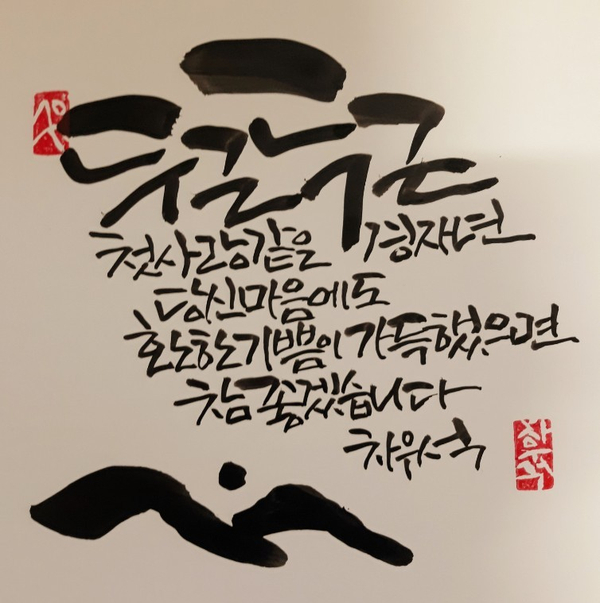 두근두근
첫사랑같은 경자년
당신마음에도
환한기쁨이 가득했으면
참 좋겠습니다